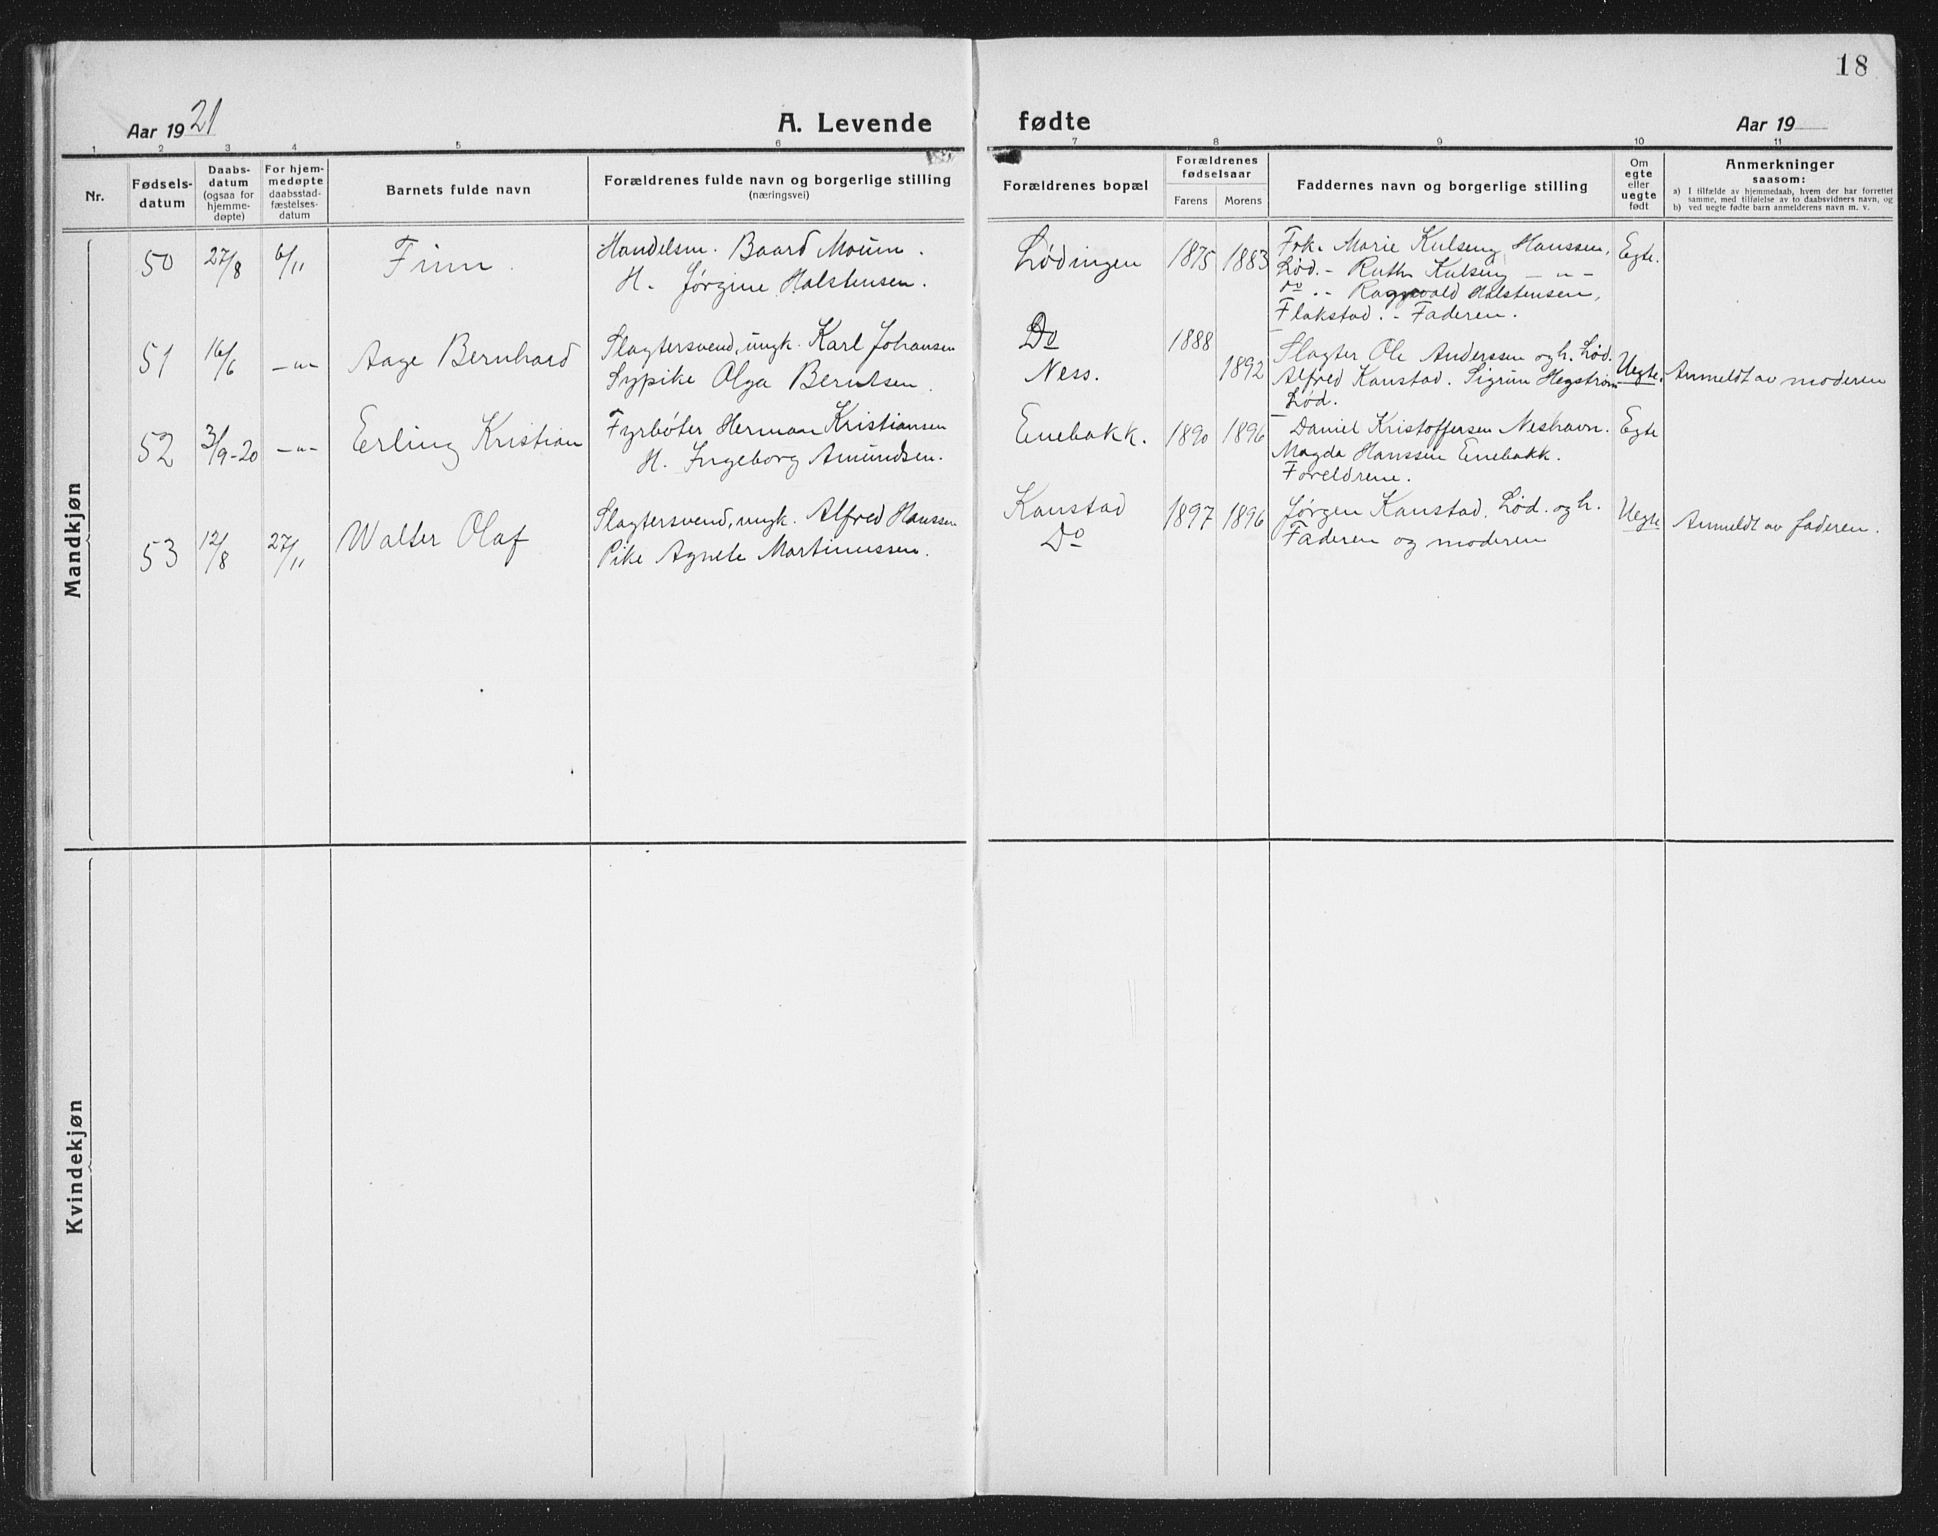 18
Aar 1921
A. Levende
fødte
Aar 19
1 2 3 4 5 6 7 8 9 10 11
Nr.
Fødsels-
datum
Daabs-
datum
(ogsaa for
hjemme-
døpte)
For hjem-
medøpte
daabsstad-
fæstelses-
datum
Barnets fulde navn
Forældrenes fulde navn og borgerlige stilling
(næringsvei)
Forældrenes bopæl
Forældrenes
fødselsaar
Farens Morens
Faddernes navn og borgerlige stilling
Om
egte
eller
uegte
født
Anmerkninger
saasom:
a) I tilfælde av hjemmedaab, hvem der har forrettet
samme, med tilføielse av to daabsvidners navn, og
b) ved uegte fødte barn anmelderens navn m. v.
Mandkjøn
50 27/8 6/11 Finn.
Handelsm. Baard Moum.
H. Jørgine Halstensen.
Lødingen 1875 1883
Frk. Marie Kulseng Hanssen,
Lød. - Ruth Kulseng - " -
do .- Ragnvald Halstensen,
Flakstad. - Faderen.
Egte.
51 16/6 - " - Aage Bernhard
Slagtersvend, ungk. Karl Johansen
Sypike Olga Berntsen.
Do 1888
Ness. 1892
Slagter Ole Anderssen og h. Lød.
Alfred Kanstad. Sigrun Hegstrøm
Lød.
Uegte. Anmeldt av moderen
52 3/9-20 - " - Erling Kristian
Fyrbøter Herman Kristiansen
H. Ingeborg Amundsen.
Enebakk. 1890 1896
Daniel Kristoffersen Neshavn.
Magda Hanssen Enebakk.
Foreldrene.
Egte
53 12/8 27/11 Walter Olaf
Slagtersvend, ungk. Alfred Hanssen
Pike Agnete Martinussen.
Kanstad 1897 1896
Do
Jørgen Kanstad. Lød. og h.
Faderen og moderen
Uegte Anmeldt av faderen.
Kvindekjøn